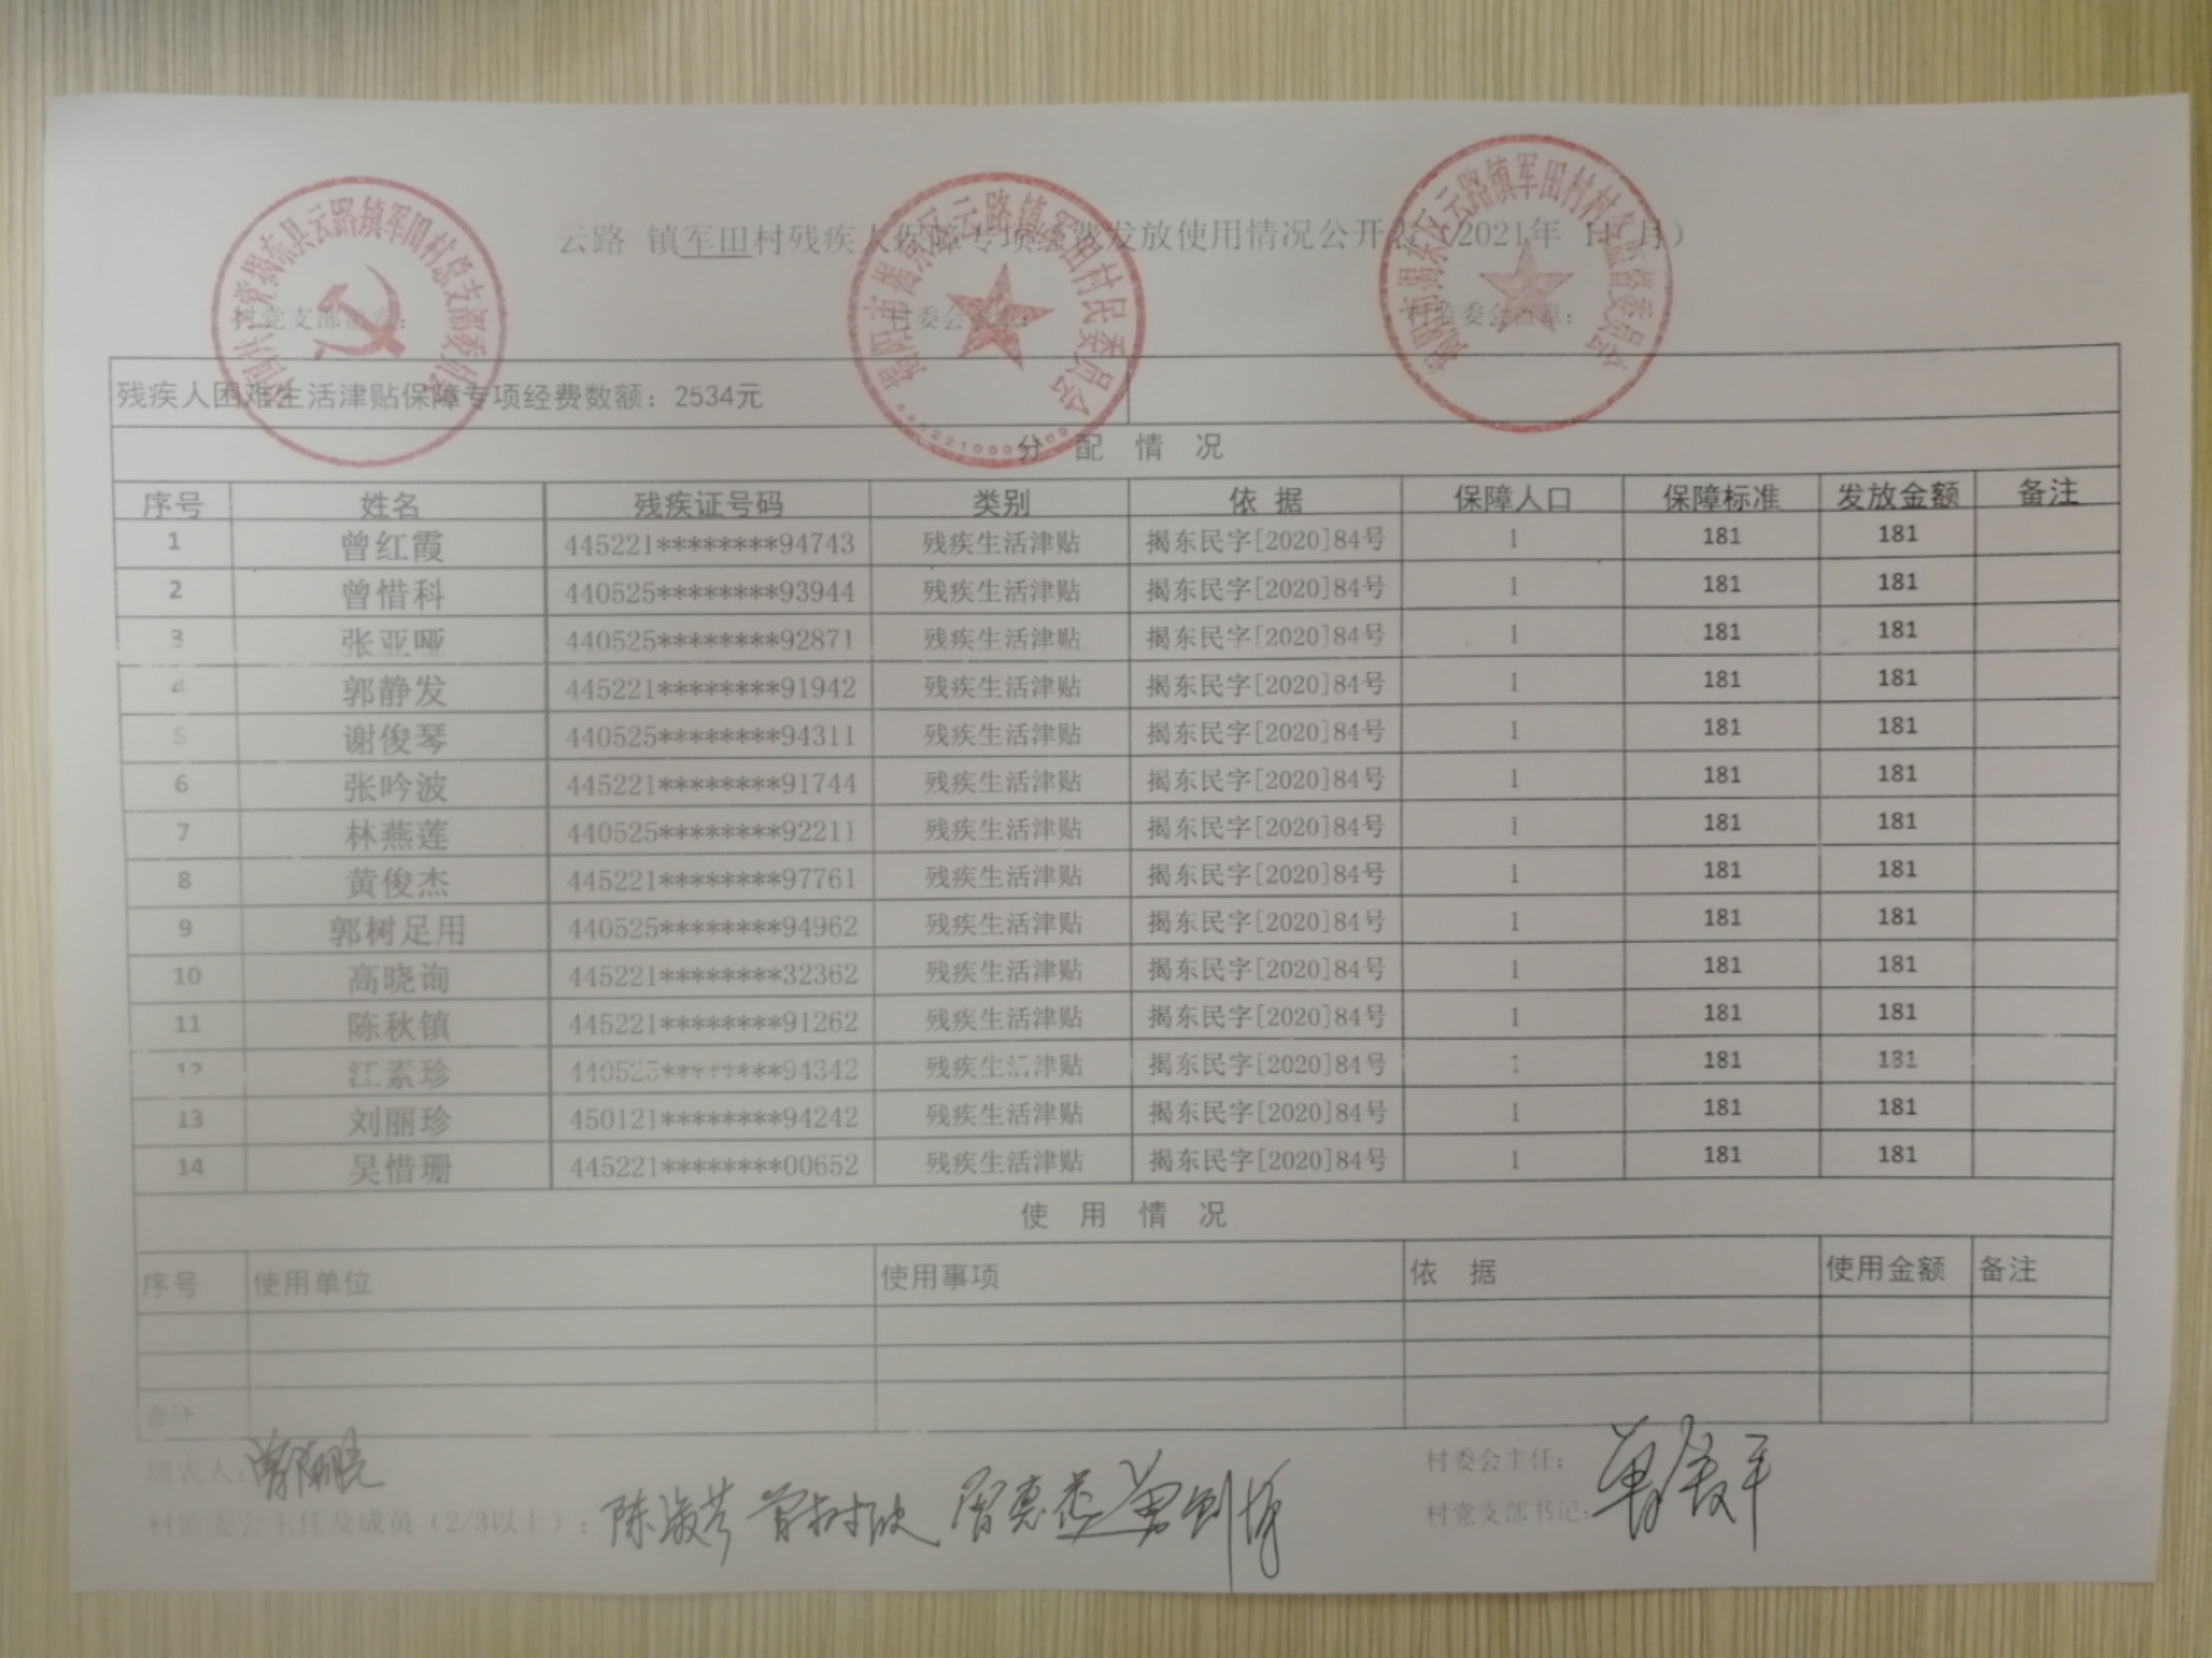 云路 镇军田村残疾人保障专项经费发放使用情况公开表（2021年 11 月）
村党支部盖章： 村委会盖章： 村监委会盖章：
残疾人困难生活津贴保障专项经费数额：2534元
分 配 情 况
序号 姓名 残疾证号码 类别 依 据 保障人口 保障标准 发放金额 备注
1 曾红霞 445221********94743 残疾生活津贴 揭东民字[2020]84号 1 181 181
2 曾惜科 440525********93944 残疾生活津贴 揭东民字[2020]84号 1 181 181
3 张亚哑 440525********92871 残疾生活津贴 揭东民字[2020]84号 1 181 181
4 郭静发 445221********91942 残疾生活津贴 揭东民字[2020]84号 1 181 181
5 谢俊琴 440525********94311 残疾生活津贴 揭东民字[2020]84号 1 181 181
6 张吟波 445221********91744 残疾生活津贴 揭东民字[2020]84号 1 181 181
7 林燕莲 440525********92211 残疾生活津贴 揭东民字[2020]84号 1 181 181
8 黄俊杰 445221********97761 残疾生活津贴 揭东民字[2020]84号 1 181 181
9 郭树足用 440525********94962 残疾生活津贴 揭东民字[2020]84号 1 181 181
10 高晓询 445221********32362 残疾生活津贴 揭东民字[2020]84号 1 181 181
11 陈秋镇 445221********91262 残疾生活津贴 揭东民字[2020]84号 1 181 181
12 江素珍 440525********94342 残疾生活津贴 揭东民字[2020]84号 1 181 181
13 刘丽珍 450121********94242 残疾生活津贴 揭东民字[2020]84号 1 181 181
14 吴惜珊 445221********00652 残疾生活津贴 揭东民字[2020]84号 1 181 181
使 用 情 况
序号 使用单位 使用事项 依 据 使用金额 备注
合计
填表人： 村委会主任：
村监委会主任及成员（2/3以上）： 陈淑芳 村党支部书记：